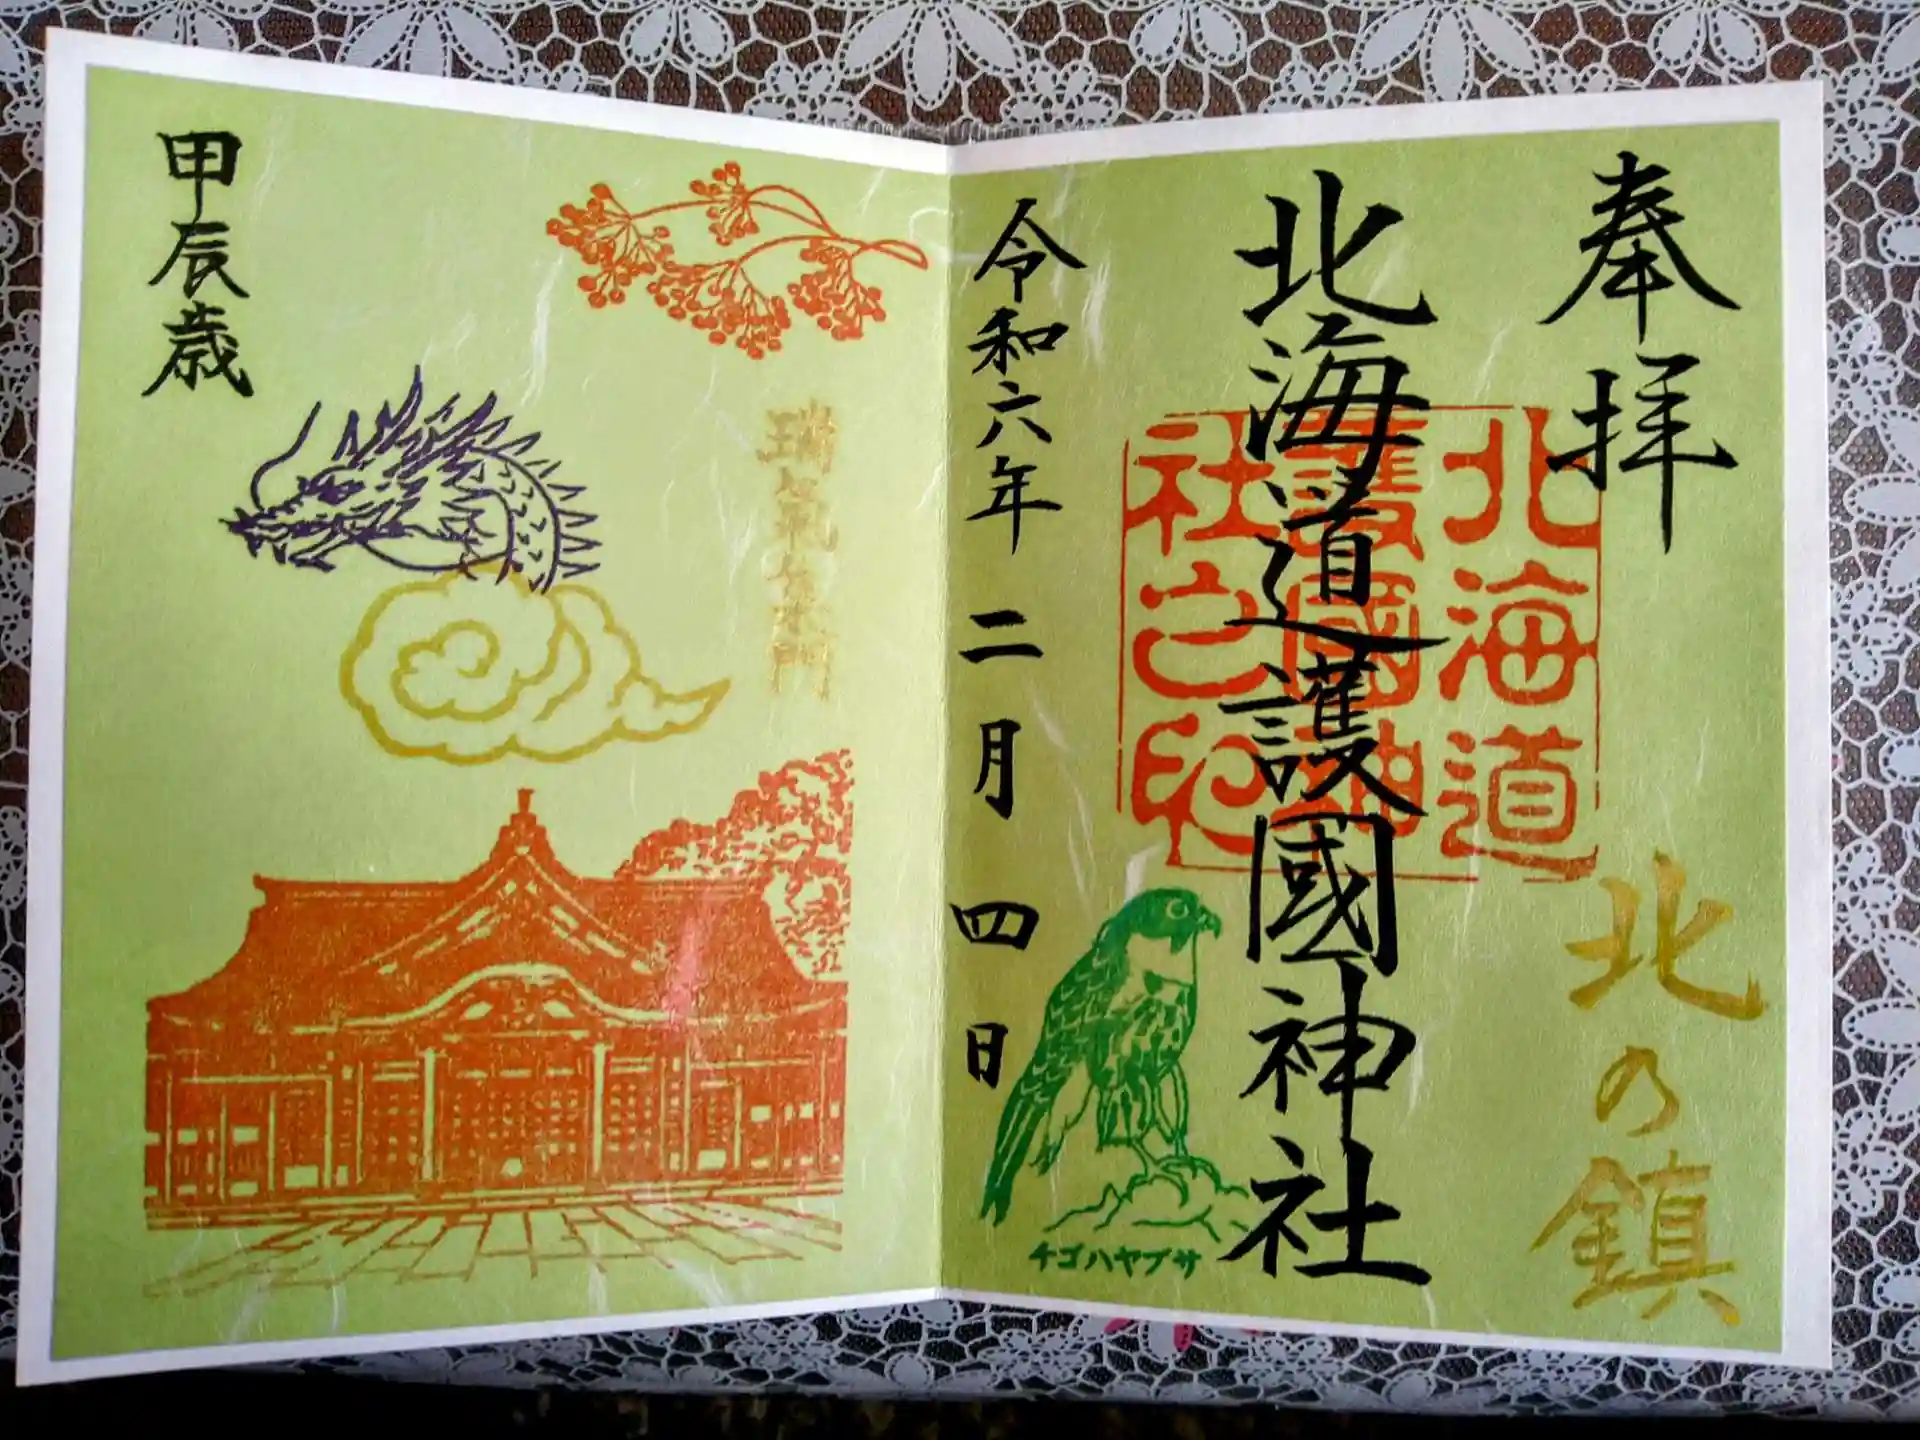 奉拝
北の鎮
北海道護國神社
北海道
護國神
社之印
令和六年二月四日
チゴハヤブサ
瑞氣集門
甲辰歳